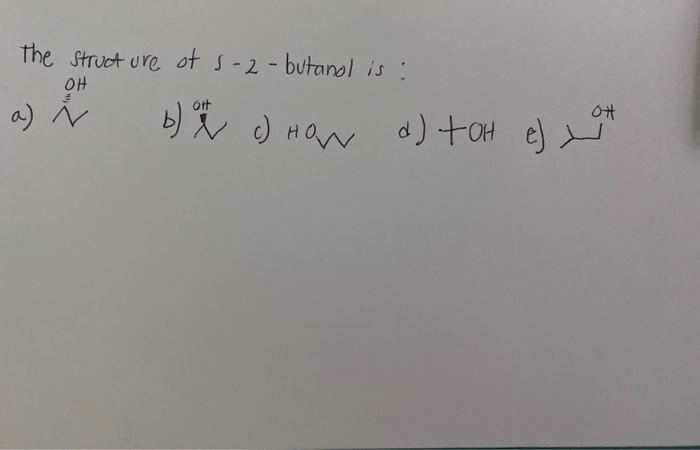 The structure of s-2-butanol is :
OH OH OH
a) b) c) HO d) OH e)